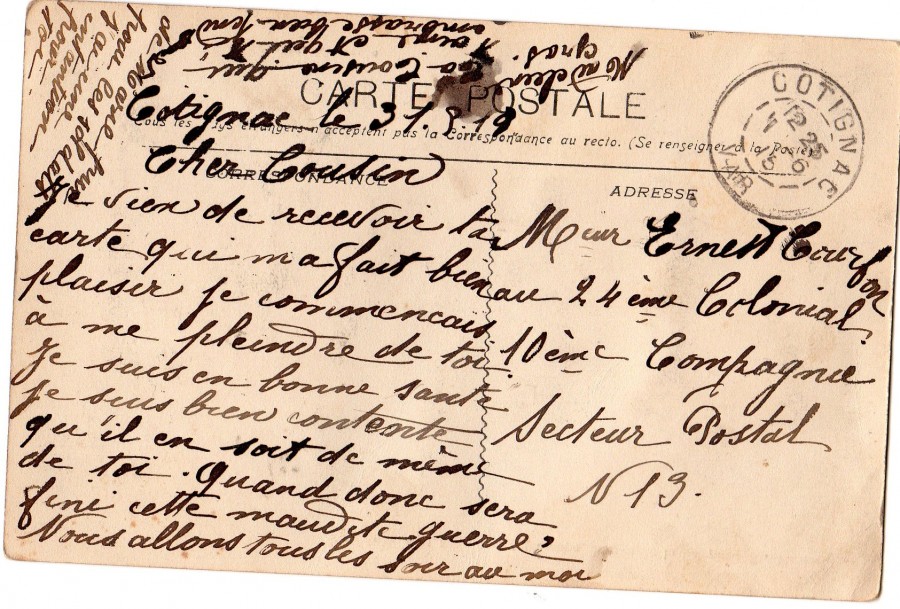 CARTE POSTALE
Tous les Pays étrangers n'acceptent pas la Correspondance au recto. (Se renseigner à la Poste)
CORRESPONDANCE
ADRESSE
COTIGNAC
12 25
7 5
16
VAR
Cotignac le 3
Cher Cousin
Je vien de recevoir ta
carte qui m a fait bien
plaisir je commencais
à me pleindre de toi.
Je suis en bonne sante
je suis bien contente
qu'il en soit de même
de toi. Quand donc sera
fini cette maudite guerre?
Nous allons tous les soir au moi
de Marie
pour les soldats
une
intention
pour
toi
ta Cousine qui
t'aime et qui
embrasse bien
gros.
Meur Ernest
au 24ème Colonial
10ème Compagnie
Secteur Postal
N 13.